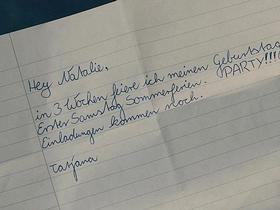 Hey Natalie,
in 3 Wochen feiere ich meinen Geburtstag
Erster Samstag Sommerferien. PARTY!!!!
Einladungen kommen noch.
Tatjana